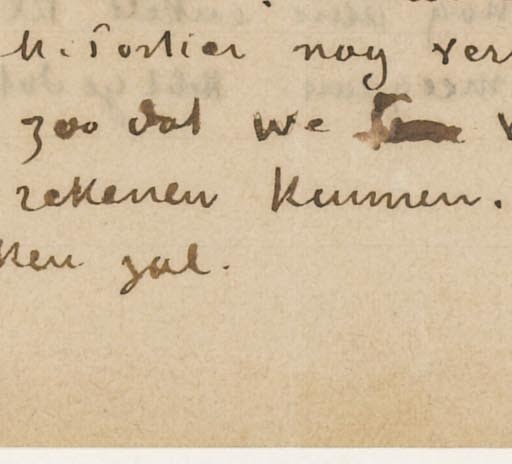 M. Tersteeg nog ver
zoo dat we
rekenen kunnen.
ken zal.